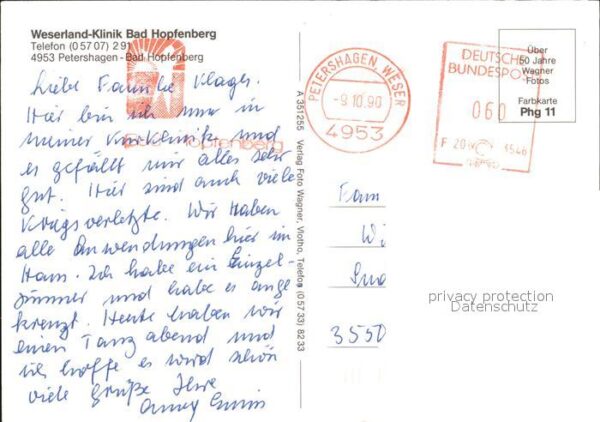 Weserland-Klinik Bad Hopfenberg
Telefon (0 57 07) 2 91
4953 Petershagen - Bad Hopfenberg
Liebe Familie Klages.
Hier bin ich nun in
meiner Kurklinik und
es gefällt mir alles sehr
gut. Hier sind auch viele
Krigsverletzte. Wir haben
alle Anwendungen hier im
Haus. Ich habe ein Einzel-
zimmer und habe es ange
kreuzt. Heute haben wir
einen Tanz abend und
ich hoffe es wird schön
viele Grüße Ihre
Bad Hopfenberg
A 351255 Verlag Foto Wagner, Vlotho, Telefon (0 57 33) 82 33
PETERSHAGEN WESER
-9.10.90
4953
DEUTSCHE
BUNDESPOST
060
Über
50 Jahre
Wagner
Fotos
Farbkarte
Phg 11
Fam
Wi
3550
privacy protection
Datenschutz